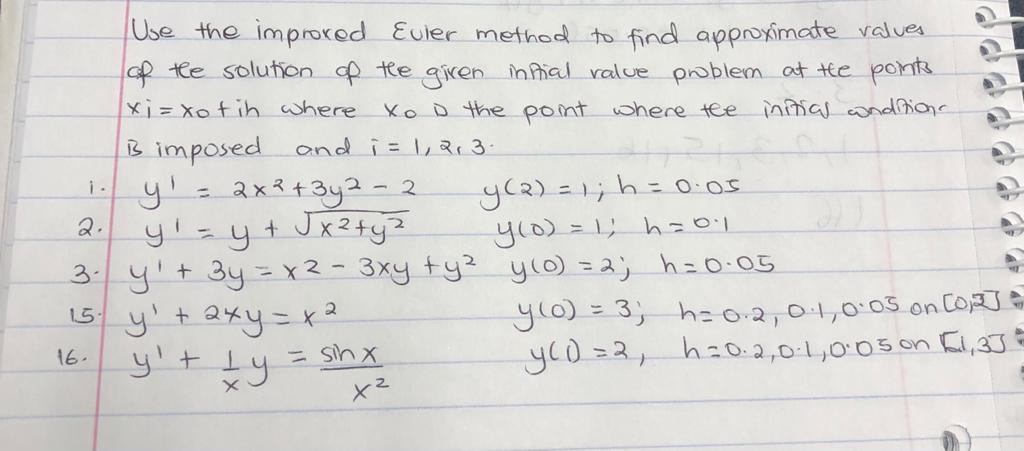 Use the improved Euler method to find approximate values
of the solution of the given initial value problem at the points
xi = x0 + ih where x0 is the point where the initial condition
is imposed and i = 1, 2, 3.
1. y' = 2x² + 3y² - 2 y(2) = 1; h = 0.05
2. y' = y + √x²+y² y(0) = 1; h = 0.1
3. y' + 3y = x2 - 3xy + y² y(0) = 2; h = 0.05
15. y' + 2xy = x² y(0) = 3; h = 0.2, 0.1, 0.05 on
16. y' + 1/x y = sin x / x² y(1) = 2, h = 0.2, 0.1, 0.05 on [1, 3]